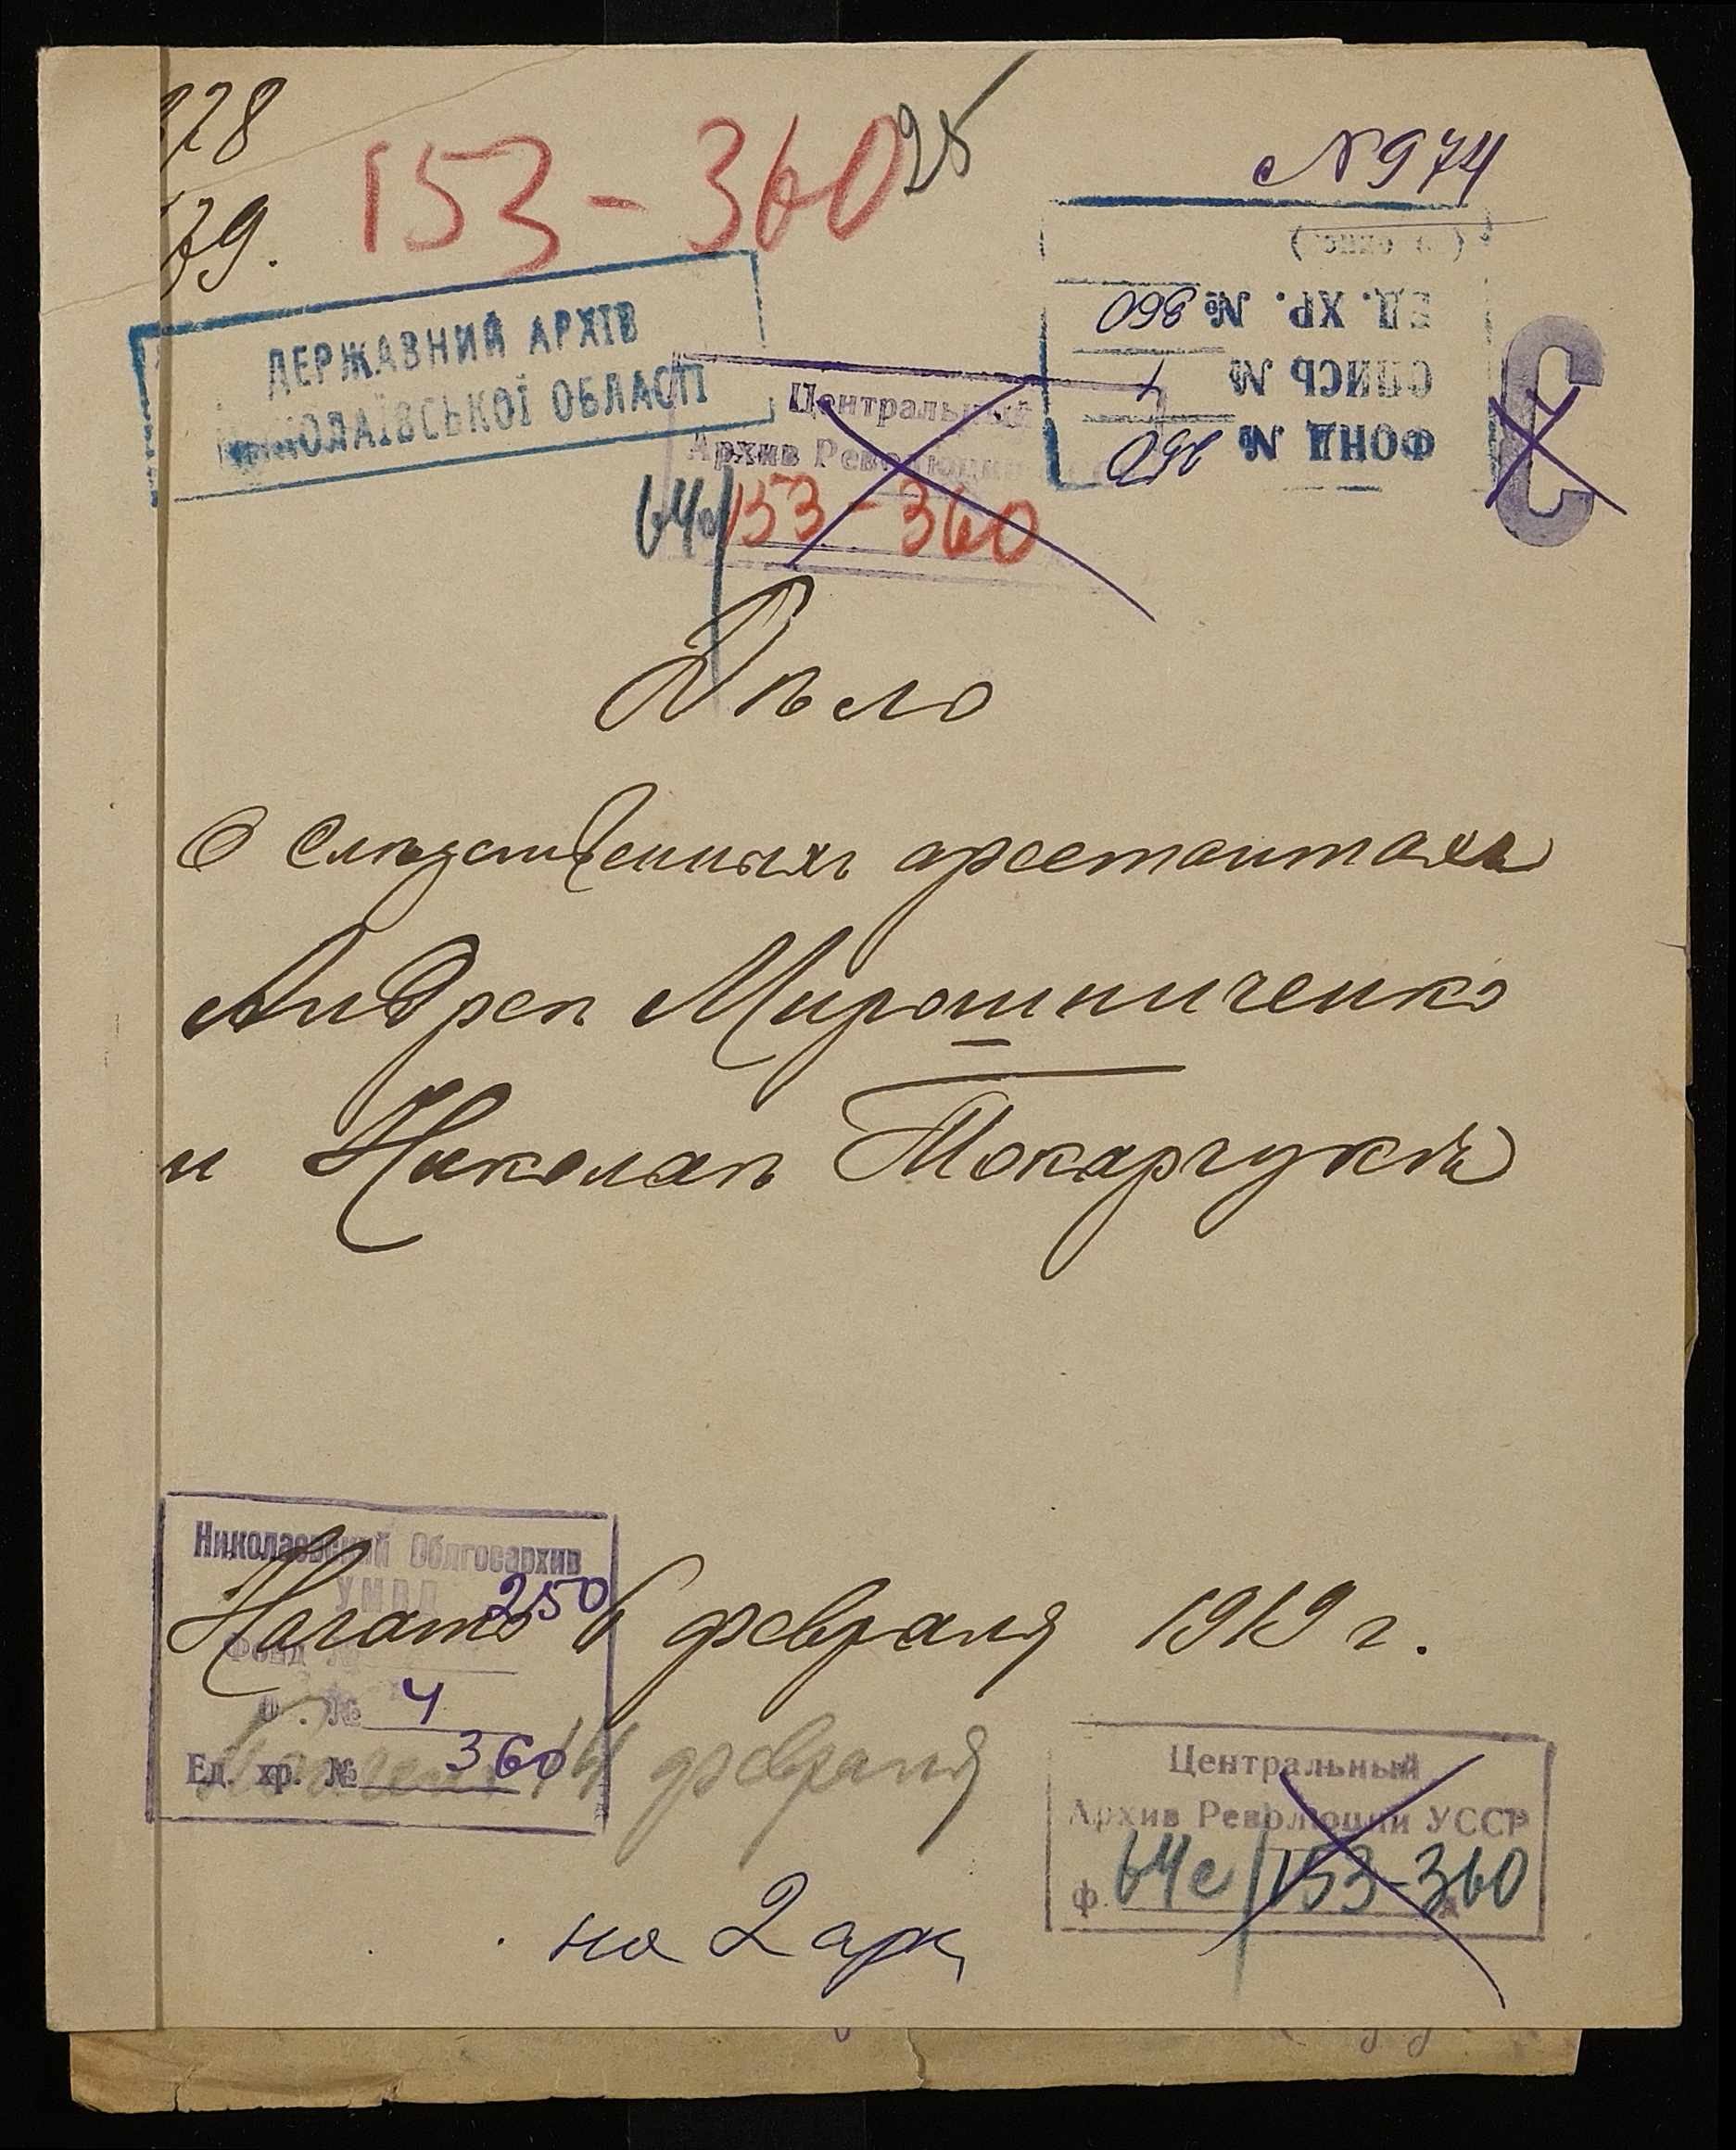 28
39.
153-360
25
№ 974
ДЕРЖАВНИЙ АРХІВ
МИКОЛАЇВСЬКОЇ ОБЛАСТІ
ЕД. ХР. № 360
ОПИСЬ № 1
ФОНД № 250
С
Центральный
Архив Революции
64с/153-360
Дѣло
О Слѣдственныхъ арестантахъ
Андреѣ Мирошниченко
и Николаѣ Токарчукѣ
Николаевский Облгосархив
УМВД
Фонд № 250
О. № 4
Ед. хр. № 360
Начато 6 февраля 1919 г.
14 февраля
Центральный
Архив Революции УССР
ф. 64с/153-360
на 2 арк